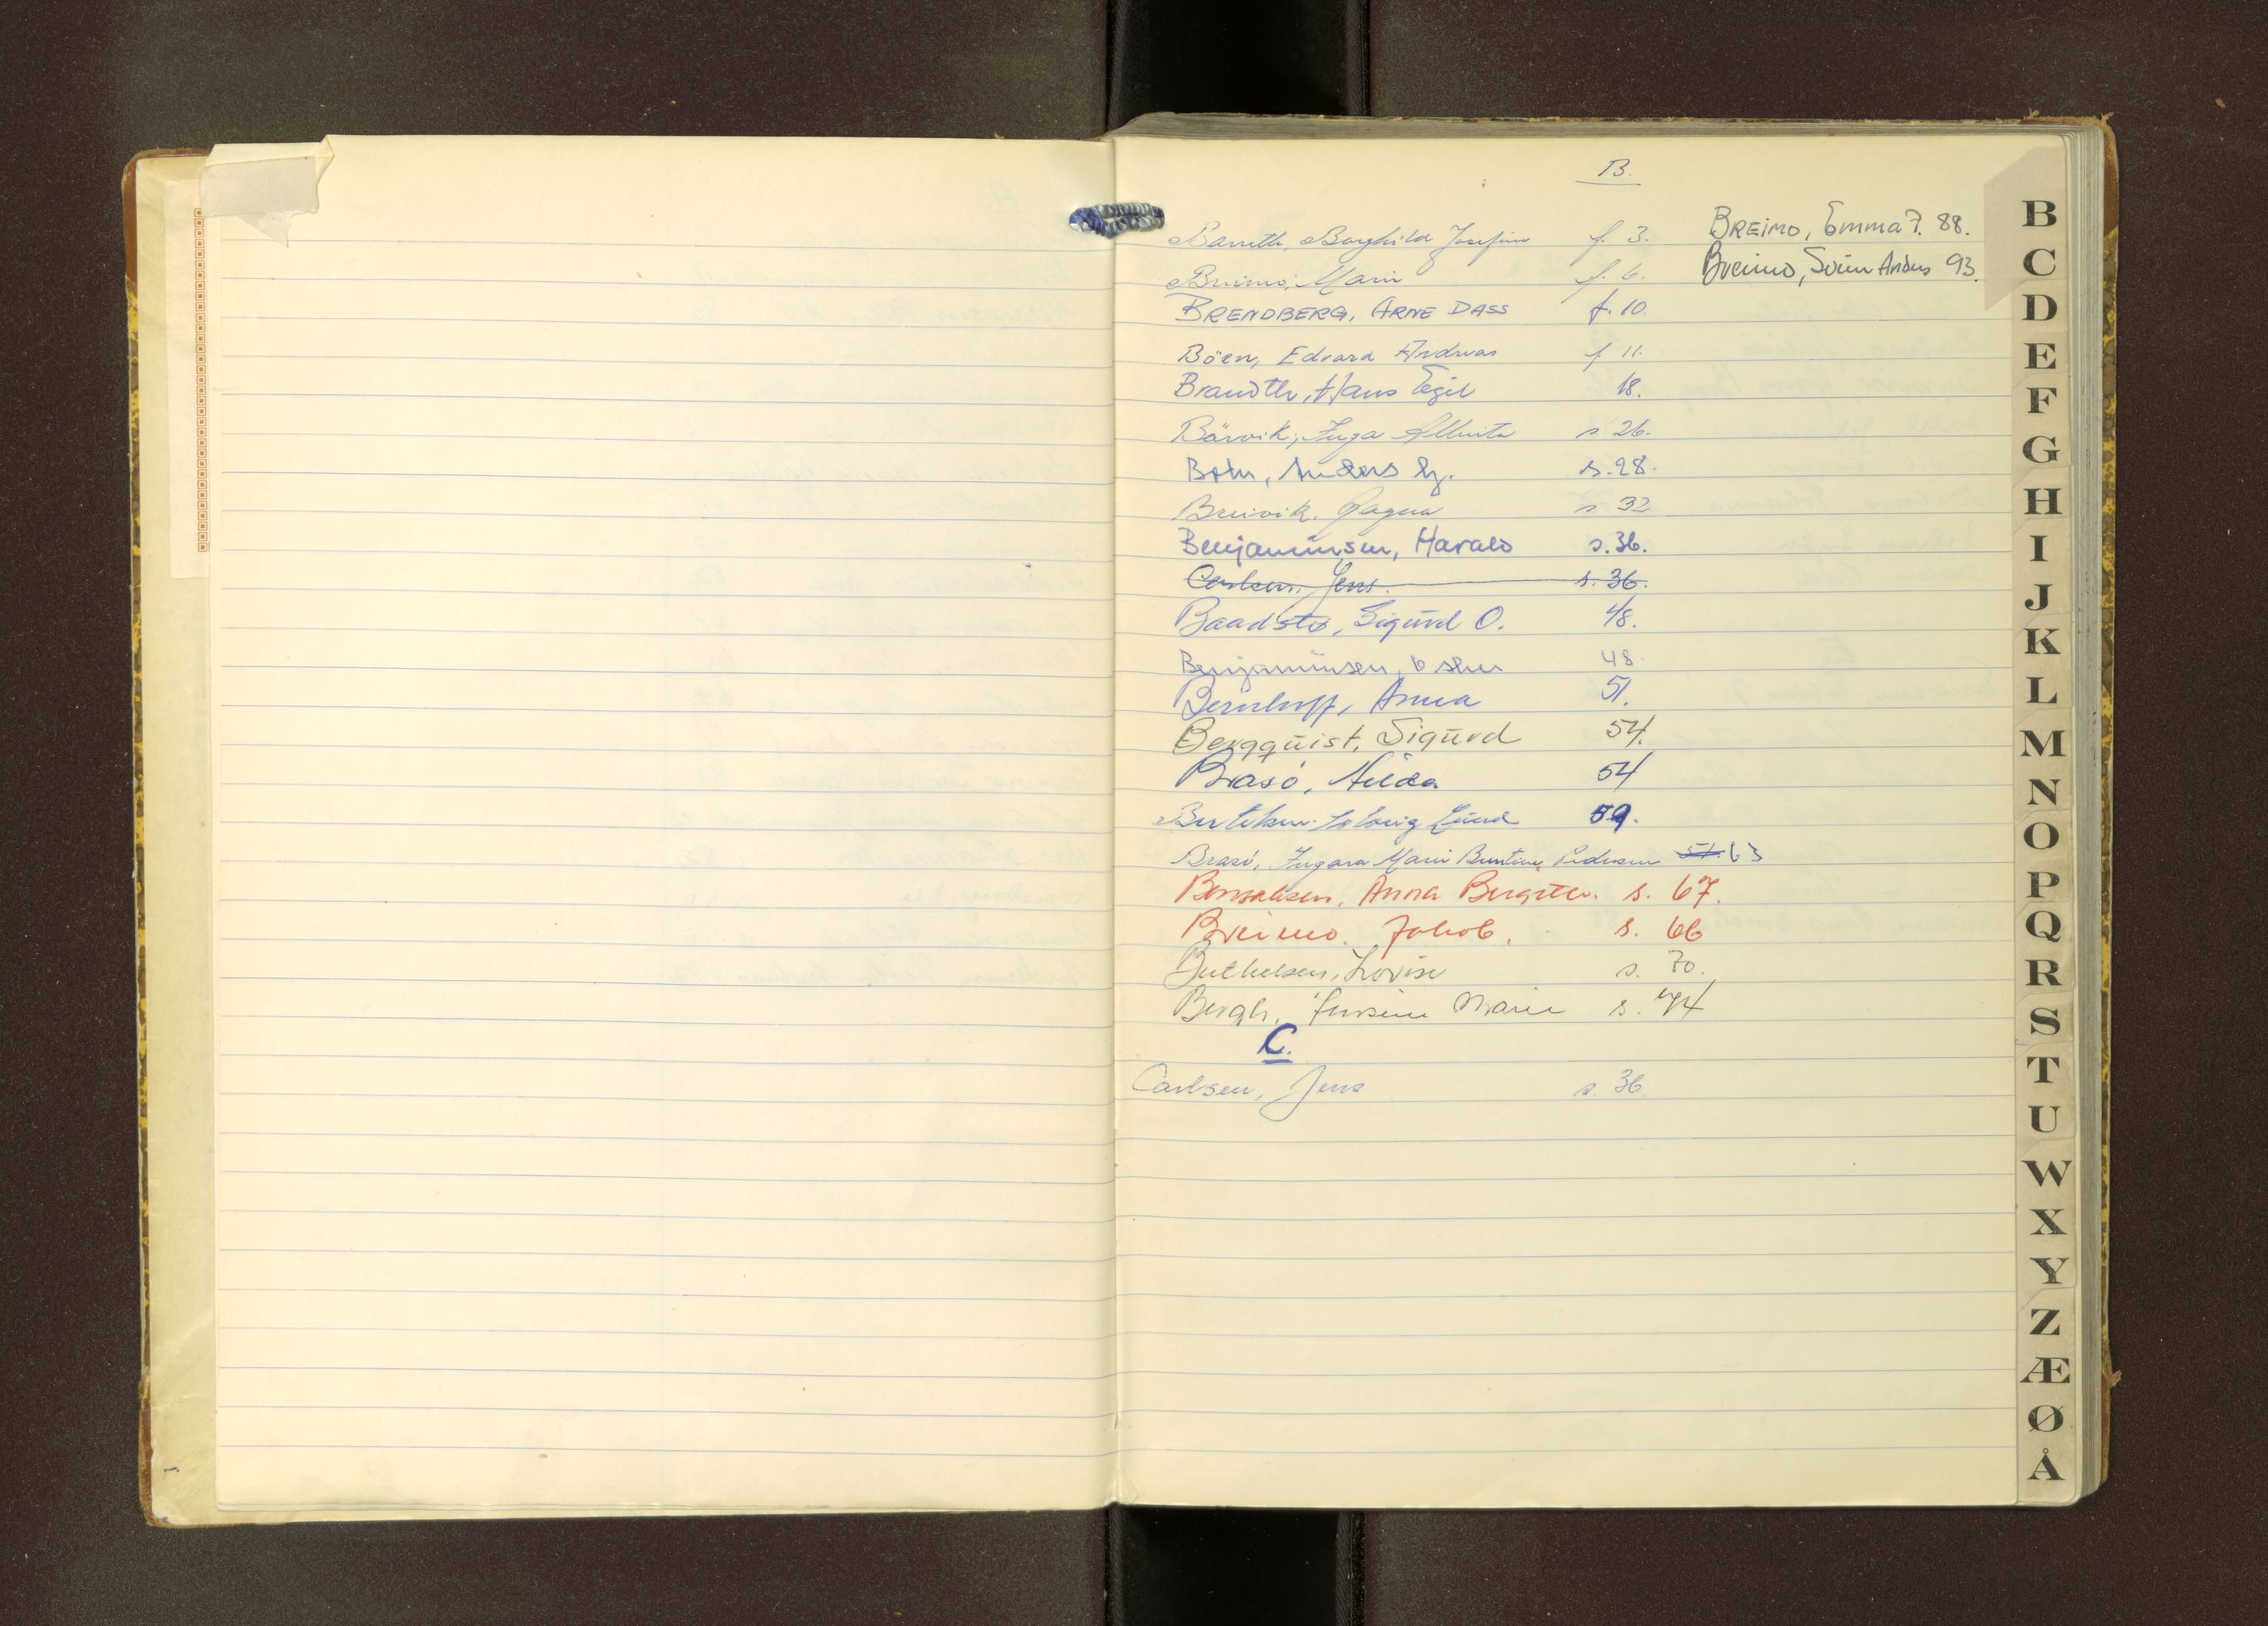 B.
Barreth, Borghild Josefine f. 3.
Breimo, Marie f. 6.
BRENDBERG, ARNE DASS f. 10.
Böen, Edvard Andreas f. 11.
Brandth, Hans Egil 18.
Bärvik, Inga s. 26.
Anders s. 28.
Breivik, Magna s 32
Benjaminsen, Harald s. 36.
Carlsen, Jens. s. 36.
Baadstø, Sigurd O. 48.
Benjaminsen, 48.
Bernhoff, Anna 51.
Bergquist, Sigurd 54.
Brasö, Hilda 54
Solveig 59.
Brasö, Marie Pedersen 51. 63
Anna s. 67.
Breimo. Jakob. s. 66
Berthelsen, Lovise s. 70.
Bergh, Marie s. 74
C.
Carlsen, Jens s. 36.
BREIMO, Emma F. 88.
Breimo, Svein Anders 93.
B
C
D
E
F
G
H
I
J
K
L
M
N
O
P
Q
R
S
T
U
W
X
Y
Z
Æ
Ø
Å